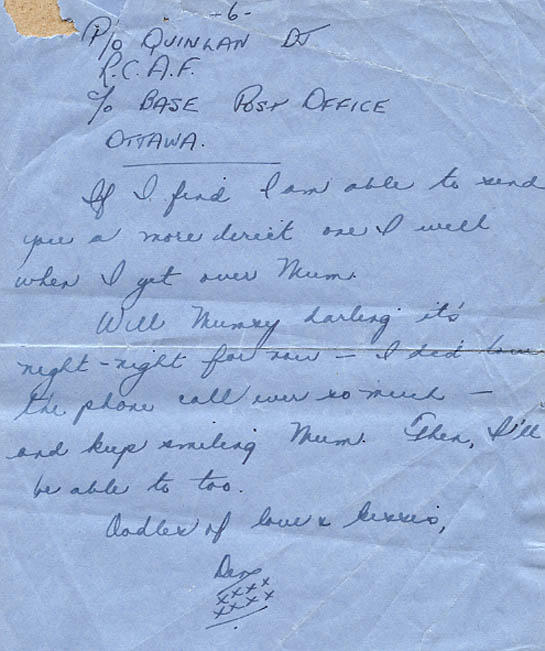 -6-
P/O QUINLAN DJ
R.C.A.F.
c/o BASE POST OFFICE
OTTAWA.
If I find I am able to send
you a more direct one I will
when I get over Mum.
Well Mumsy darling it's
night-night for now – I did love
the phone call ever so much –
and keep smiling Mum. Then, I'll
be able to too.
Oodles of love & kisses,
xxxx
xxxx